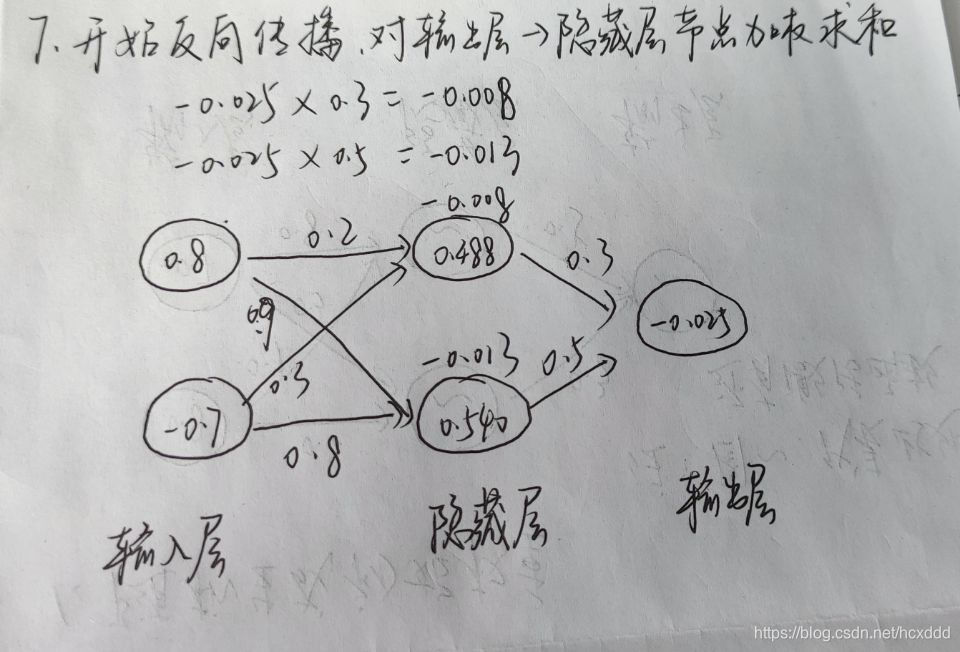 7、开始反向传播、对输出层→隐藏层节点加权求和
-0.025 × 0.3 = -0.008
-0.025 × 0.5 = -0.013
-0.008
0.8 0.2 0.488 0.3
0.9 -0.025
-0.013
0.3 0.5
-0.7 0.8 0.540
输入层 隐藏层 输出层
https://blog.csdn.net/hcxddd